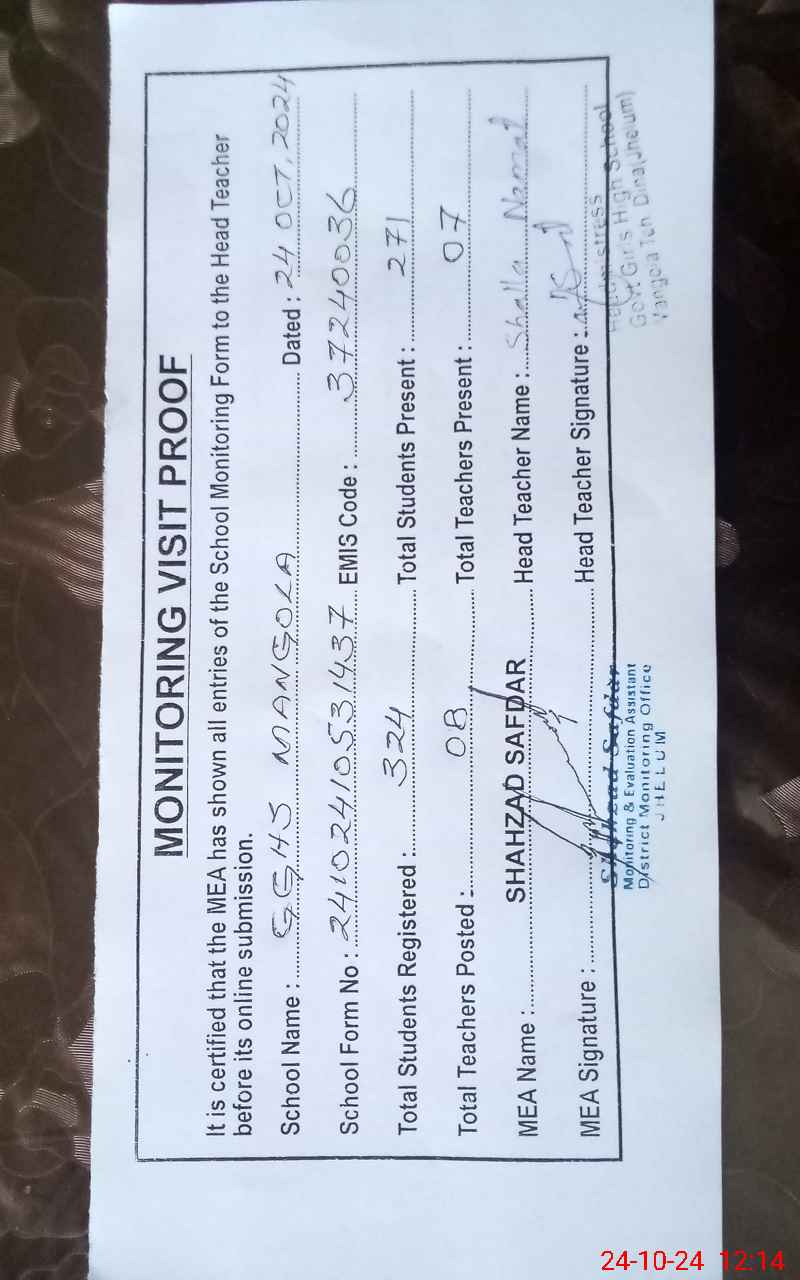 MONITORING VISIT PROOF
It is certified that the MEA has shown all entries of the School Monitoring Form to the Head Teacher
before its online submission.
School Name : GGHS MANGOLA Dated : 24 OCT, 2024
School Form No : 2410241053 1437 EMIS Code : 37240036
Total Students Registered : 324 Total Students Present : 271
Total Teachers Posted : 08 Total Teachers Present : 07
MEA Name : SHAHZAD SAFDAR Head Teacher Name : Shaila
MEA Signature : Head Teacher Signature :
Shahzad Safdar
Monitoring & Evaluation Assistant
District Monitoring Office
JHELUM
Headmistress
Govt. Girls High School
Mangola Teh Dina(Jhelum)
24-10-24 12:14